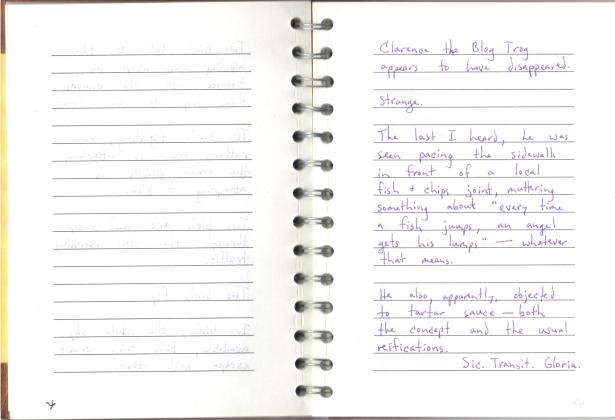 Clarence the Blog Trog
appears to have disappeared.
Strange.
The last I heard, he was
seen pacing the sidewalk
in front of a local
fish & chips joint, muttering
something about "every time
a fish jumps, an angel
gets his lumps" — whatever
that means.
He also, apparently, objected
to tartar sauce — both
the concept and the usual
reifications.
Sic. Transit. Gloria.